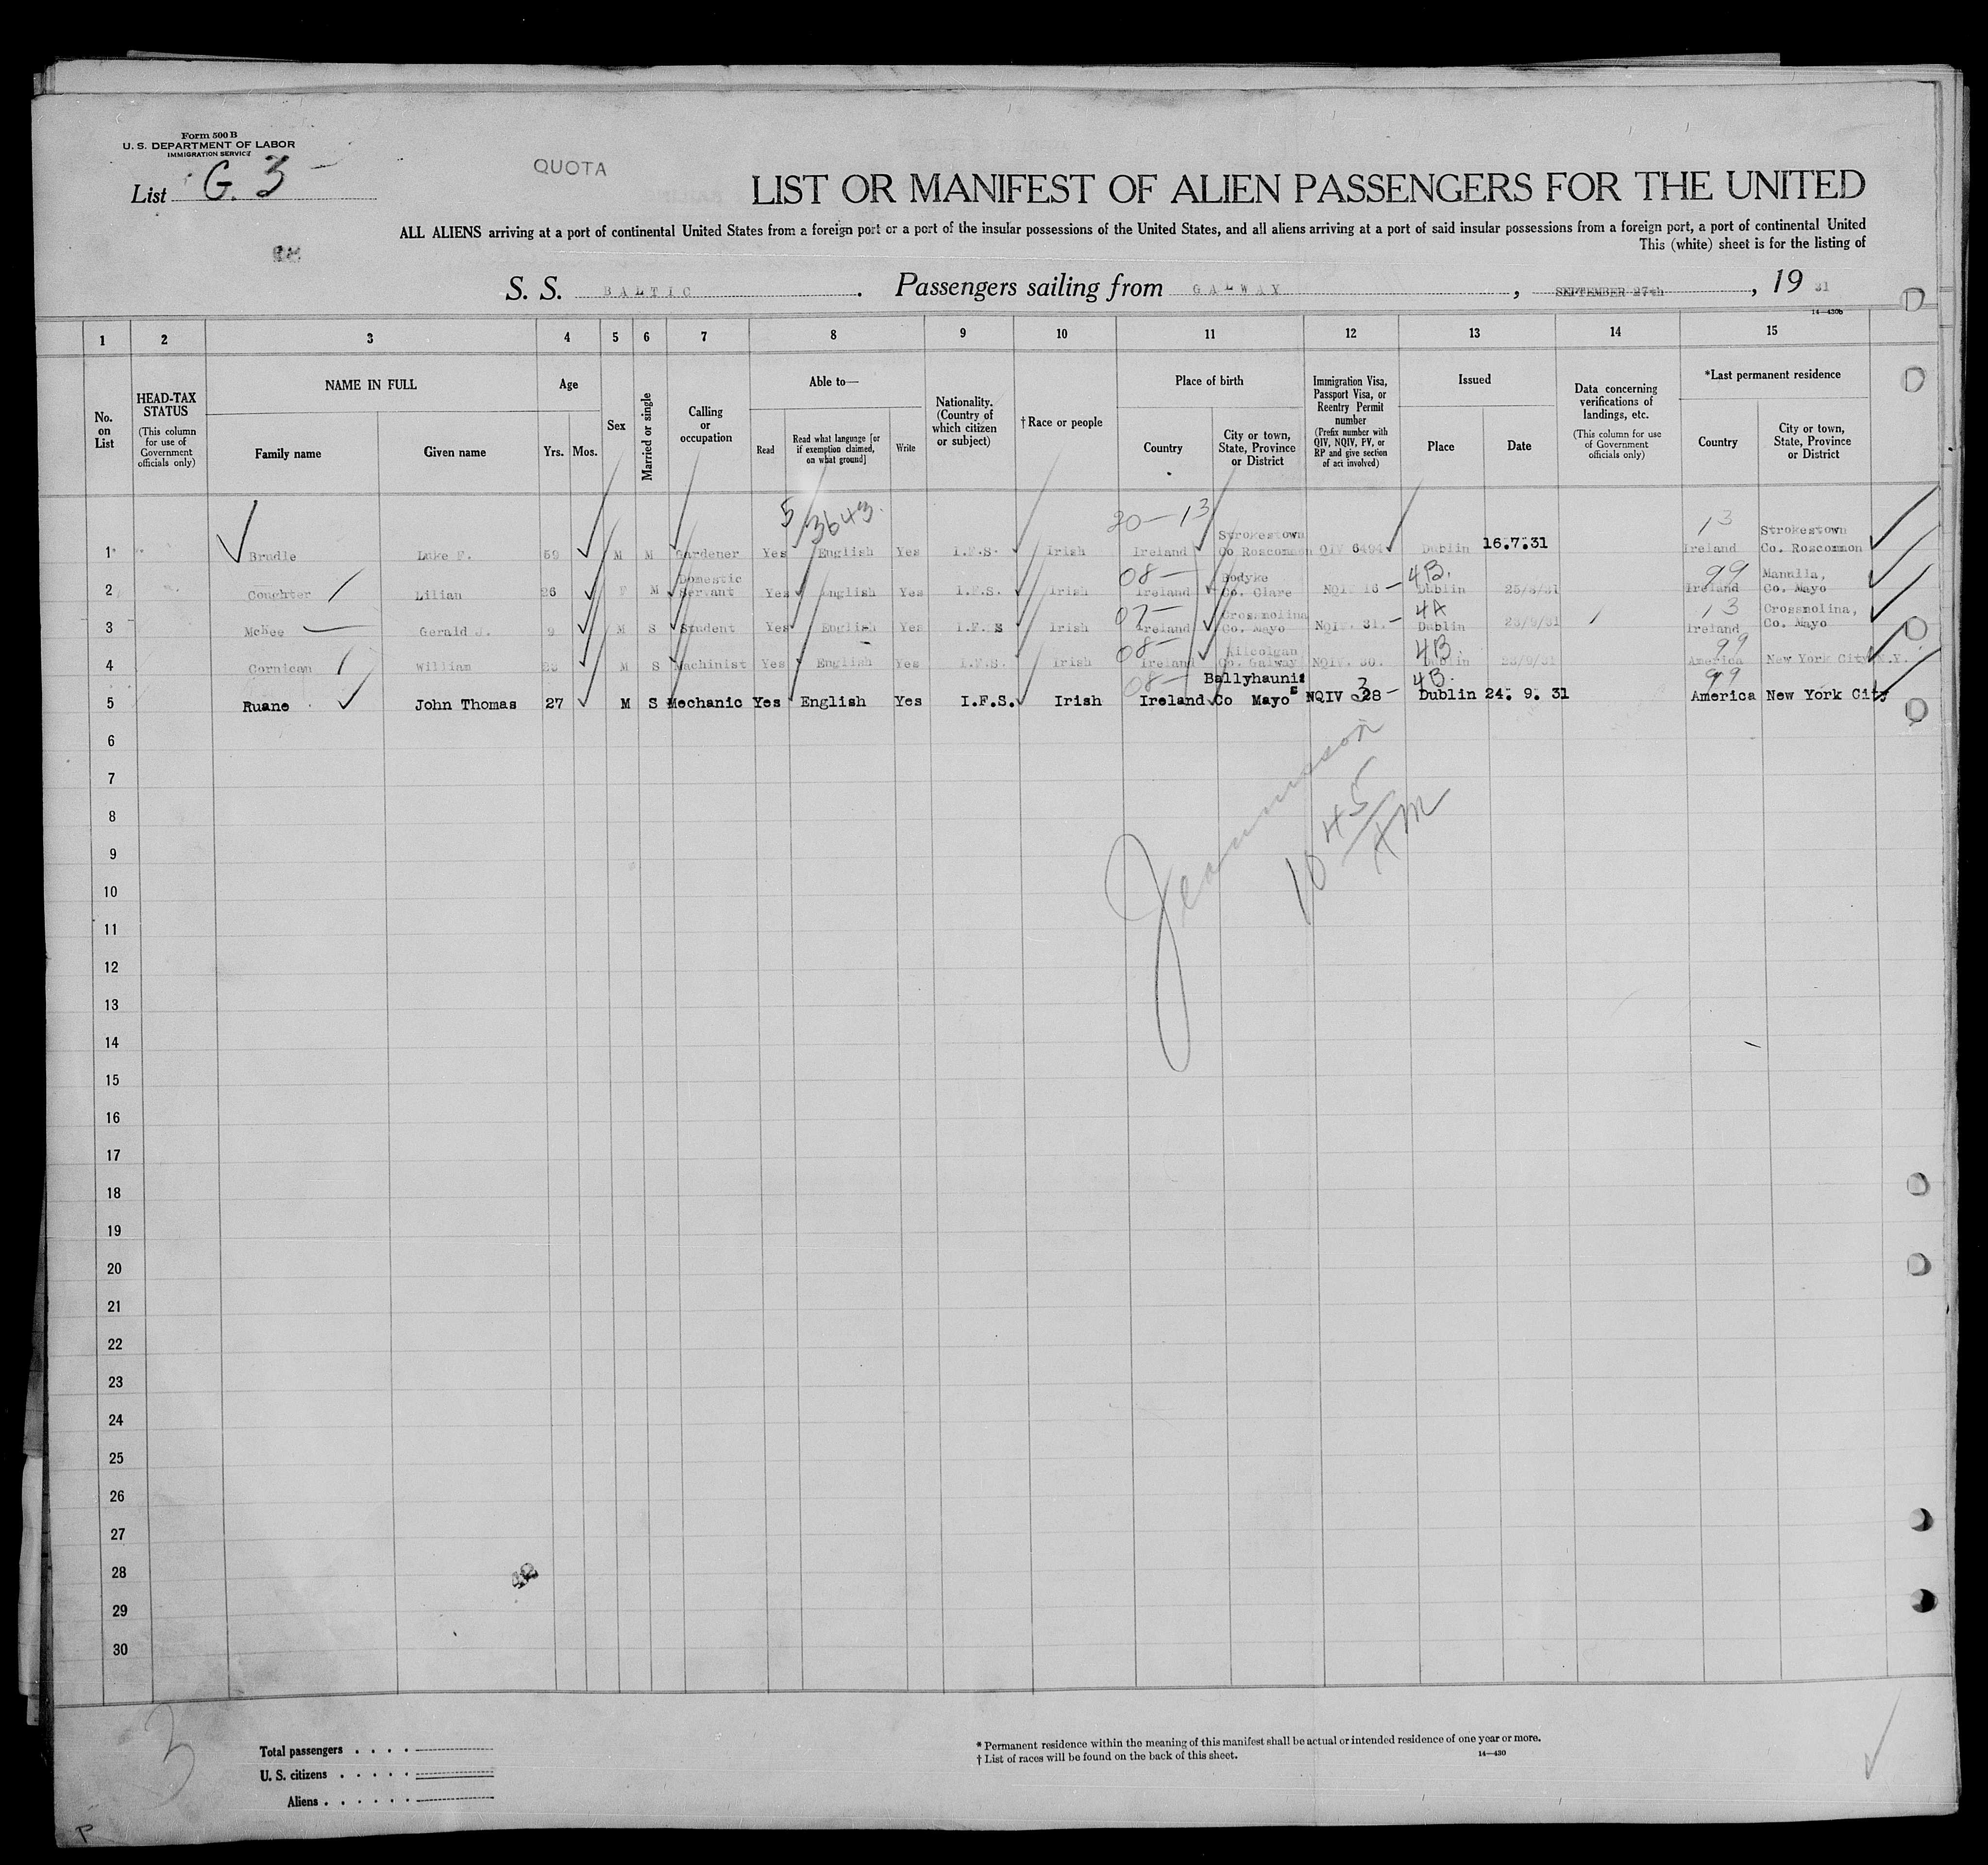 Form 500 B
U. S. DEPARTMENT OF LABOR
IMMIGRATION SERVICE
List G. 3
QUOTA
LIST OR MANIFEST OF ALIEN PASSENGERS FOR THE UNITED
ALL ALIENS arriving at a port of continental United States from a foreign port or a port of the insular possessions of the United States, and all aliens arriving at a port of said insular possessions from a foreign port, a port of continental United
This (white) sheet is for the listing of
S. S. BALTIC. Passengers sailing from GALWAY, SEPTEMBER 27th, 19 31
14—430b
1 2 3 4 5 6 7 8 9 10 11 12 13 14 15
No. on List
HEAD-TAX STATUS (This column for use of Government officials only)
NAME IN FULL
Family name Given name
Age
Yrs. Mos.
Sex
Married or single
Calling or occupation
Able to—
Read Read what language [or if exemption claimed, on what ground] Write
Nationality. (Country of which citizen or subject)
† Race or people
Place of birth
Country City or town, State, Province or District
Immigration Visa, Passport Visa, or Reentry Permit number (Prefix number with QIV, NQIV, PV, or RP and give section of act involved)
Issued
Place Date
Data concerning verifications of landings, etc. (This column for use of Government officials only)
*Last permanent residence
Country City or town, State, Province or District
5/3643. 20—13 13
1 Bradle Luke F. 59 M M Gardener Yes English Yes I.F.S. Irish Ireland Strokestown Co Roscommon QIV 6494 Dublin 16.7.31 Ireland Strokestown Co. Roscommon
08— 4B. 99
2 Coughter Lilian 26 F M Domestic Servant Yes English Yes I.F.S. Irish Ireland Bodyke Co. Clare NQIV 16 — Dublin 25/8/31 Ireland Manulla, Co. Mayo
07— 4A 13
3 McHee Gerald J. 9 M S Student Yes English Yes I.F.S Irish Ireland Crossmolina Co. Mayo NQIV. 31. — Dublin Ireland Crossmolina, Co. Mayo
08— 4B. 99
4 Cornican William M S Machinist Yes English Yes I.F.S. Irish Ireland Kilcolgan Co. Galway NQIV. 30. Dublin 23/9/31 America New York City N.Y.
08— 3 4B. 99
5 Ruane John Thomas 27 M S Mechanic Yes English Yes I.F.S. Irish Ireland Ballyhaunis Co Mayo NQIV 28 — Dublin 24. 9. 31 America New York City
6
7
8
9
10
11
12
13
14
15
16
17
18
19
20
21
22
23
24
25
26
27
28
29
30
10 45/AM
3
Total passengers . . . .
U. S. citizens . . . . .
Aliens . . . . . .
* Permanent residence within the meaning of this manifest shall be actual or intended residence of one year or more.
† List of races will be found on the back of this sheet.
14—430
P